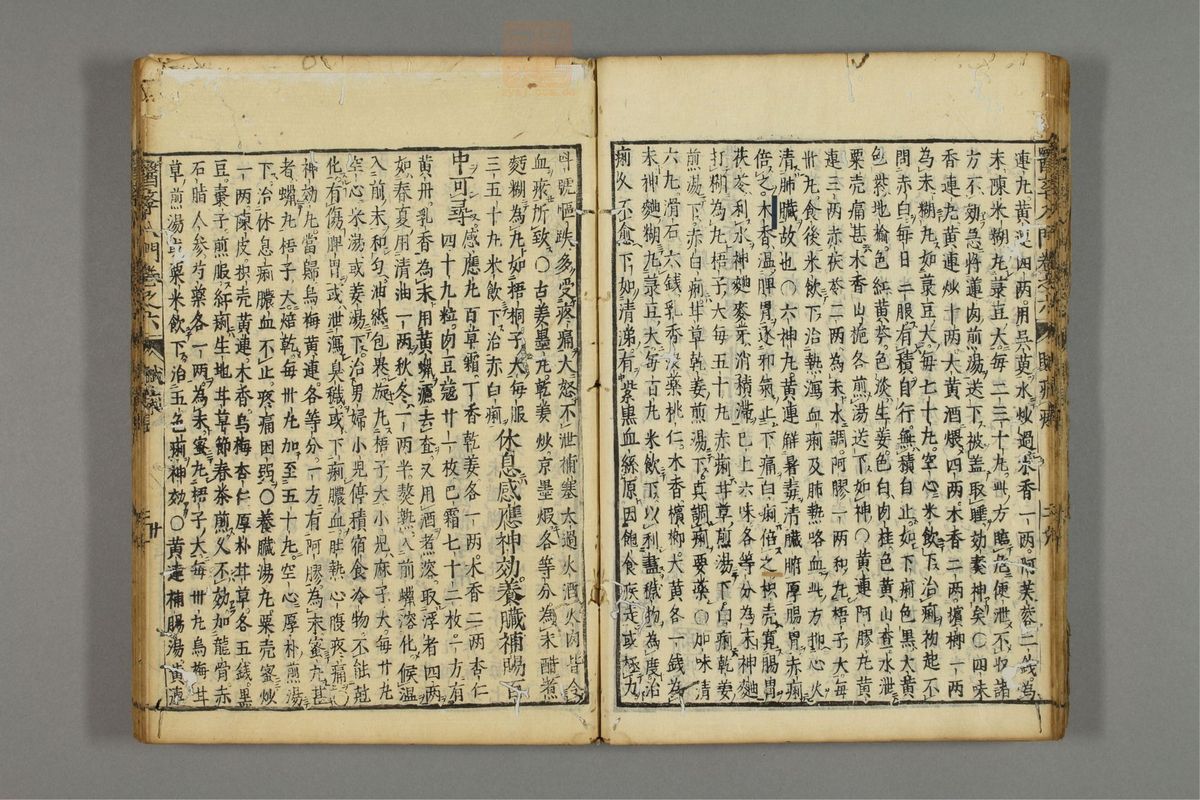 連丸黄連四兩。用吳茱水炒過。木香一兩。阿芙蓉二錢。爲
末。陳米糊丸菉豆大。每二三十丸。此方臨危便泄不收諸
方不効。急將蓮肉煎湯送下。被蓋取睡効蓁神矣〇四味
香連丸黄連炒十兩。大黄酒煨四兩木香二兩。檳榔一兩
爲末。糊丸如菉豆大。每七十丸。空心米飲下。治痢初起。不
問赤白。每日二服。有積自行。無積自止。如下痢色黒。大黄
色紫。地榆。色紅。黄芩。色淡。生姜。色白。肉桂。色黄。山查。水泄
粟壳。痛甚。木香山梔各煎湯送下如神〇黄連阿膠丸黄
連三兩赤茯苓二兩爲末。水調。阿膠一兩。和丸。梧子大。每
卅丸食後米飲下。治熱瀉血痢及肺熱咯血。此方抑心火
清肺臟故也〇六神丸。黄連解暑毒清臟腑厚腸胃赤痢
倍之。木香温脾胃逐邪氣止下痛白痢倍之。枳壳寛腸胃
茯苓利水。神麯麥芽消積滯。已上六味各等分爲末。神麯
打糊爲丸梧子大。每五十丸。赤痢甘草煎湯下。白痢乾姜
煎湯下。赤白痢。甘草乾姜煎湯下。真調痢要藥〇加味清
六丸。滑石六錢。乳香没藥桃仁木香檳榔大黄各一錢爲
末。神麯糊丸菉豆大。每百丸米飲下。以利盡穢物爲度。治
痢久不愈。下如清涕。有紫黒血絲。原因飽食疾走。或極力
叫號。慪跌多受疼痛。大怒不泄。補塞太過。火酒火肉皆令
血瘀所致。〇古姜墨丸乾姜炒京墨煅各等分爲末。醋煮
麪糊爲丸如梧桐子大。每服三五十丸米飲下。治赤白痢
休息感應神効。養臟補腸
中可尋。感應丸百草霜。丁香乾姜各一兩。木香二兩杏仁
四十九粒。肉豆蔻廿一枚巴霜七十二枚。一方有
黄丹。乳香爲末。用黄蠟濾去查。又用酒煮溶。取浮者四兩
如春夏用清油一兩。秋冬。一兩半。熬熟。入前蠟溶化。候温
入前末和勻。油紙包裹。旋丸梧子大。小児麻子大。每廿丸
空心米湯或姜湯下。治男婦小児停積宿食冷物不能尅
化。有傷脾胃。或泄瀉臭穢。或下痢膿血肚熱心腹疼痛〇
神効丸當歸烏梅黄連各等分。一方有阿膠爲末。蜜丸甚
者蠟丸梧子大。焙乾。每卅丸加至五十丸。空心厚朴煎湯
下。治休息痢膿血不止。疼痛困弱〇養臟湯丸粟壳蜜炒
一兩陳皮枳壳黄連木香。烏梅杏仁厚朴甘草各五錢黒
豆。棗子煎服。紅痢生地甘草節春茶煎。又不効。加龍骨赤
石脂人參芍藥各一兩。爲末。蜜丸梧子大。每卅丸烏梅甘
草煎湯或粟米飲下。治五色痢神効〇黄連補腸湯。黄連